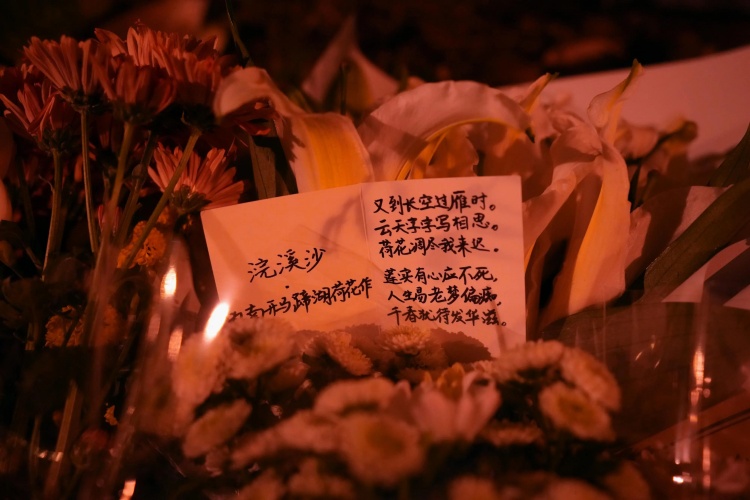 浣溪沙
·
南开马蹄湖荷花作
又到长空过雁时。
云天字字写相思。
荷花凋尽我来迟。
莲实有心应不死,
人生易老梦偏痴。
千春犹待发华滋。